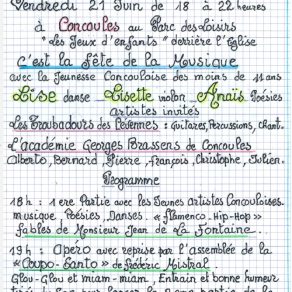 Vendredi 21 Juin de 18 à 22 heures
à Concoules au Parc des Loisirs
"Les Jeux d'enfants" derrière l'Eglise
c'est la Fête de la Musique
avec la Jeunesse Concoulaise des moins de 11 ans
Lise danse Lisette violon Anaïs Poésies
artistes invités
Les Troubadours des Cévennes : Guitares, Percussions, Chant.
L'académie Georges Brassens de Concoules
Alberto, Bernard, Pierre, François, Christophe, Julien.
Programme
18h : 1ere Partie avec les Jeunes Artistes Concoulaises.
musique, Poésies, Danses. « Flamenco - Hip-Hop »
Fables de Monsieur Jean de La Fontaine.
19h : Apéro avec reprise par l'assemblée de la
«Coupo-Santo» de Frédéric Mistral
Glou-Glou et miam-miam, Entrain et bonne humeur